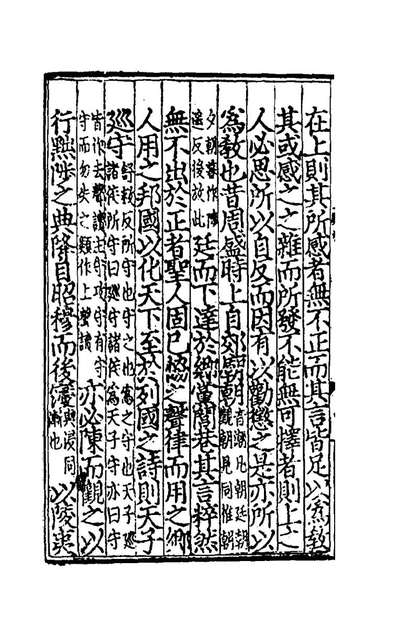 在上則其所感者無不正而其言皆足以爲教
其或感之之雜而所發不能無可擇者則上之
人必思所以自反而因有以勸懲之是亦所以
爲教也昔周盛時上自郊廟朝音潮凡朝廷朝覲朝見同惟朝
夕朝暮作陟遙反後放此廷而下達於鄉黨閭巷其言粹然
無不出於正者聖人固已恊之聲律而用之鄉
人用之邦國以化天下至於列國之詩則天子
巡守舒救反所守也守之也爲之守也天子巡守諸侯所守曰巡守諸侯爲天子守亦曰守
皆作去聲讀主守攻守有守守而勿失之類作上聲讀亦必陳而觀之以
行黜陟之典降自昭穆而後寖與浸同漸也以陵夷